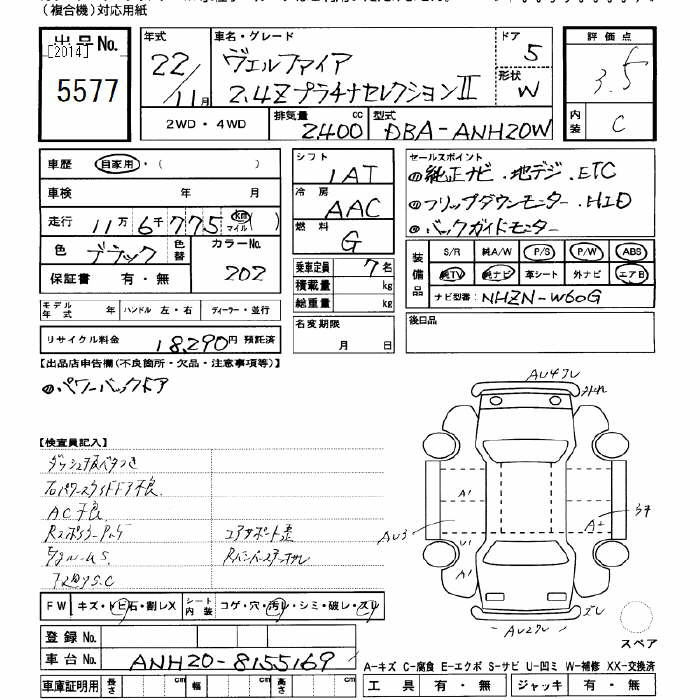 (複合機)対応用紙
出品No.
[2014]
5577
年式
22/11月
車名・グレード
ヴェルファイア
2.4Zプラチナセレクション II
ドア
5
形状
W
2WD・4WD
排気量
2400 cc
型式
DBA-ANH20W
評価点
3.5
内装
C
車歴 自家用・( )
車検 年 月
走行 11万6千775 km マイル ( )
色 ブラック 色替 カラーNo. 202
保証書 有・無
モデル年式 年 ハンドル 左・右 ディーラー・並行
リサイクル料金 18,290円 預託済
シフト 1AT
冷房 AAC
燃料 G
乗車定員 7名
積載量 kg
総重量 kg
名変期限
月 日
セールスポイント
①純正ナビ.地デジ.ETC
①フリップダウンモニター.HID
①バックガイドモニター
装備品
S/R 純A/W P/S P/W ABS
純TV 純ナビ 革シート 外ナビ エアB
ナビ型番: NHZN-W60G
後日品
【出品店申告欄(不良箇所・欠品・注意事項等)】
①パワーバックドア
【検査員記入】
AC不良
エアサポート歪
FW キズ・トビ石・割レX シート内装 コゲ・穴・汚レ・シミ・破レ・スレ
登録No.
車台No. ANH20-8155169
車庫証明用 長さ cm 幅 cm 高さ cm
AU4ズレ
A1
AU3
U1
A2
A1
ズレ
AU2ズレ
スペア
A-キズ C-腐食 E-エクボ S-サビ U-凹ミ W-補修 XX-交換済
工具 有・無 ジャッキ 有・無